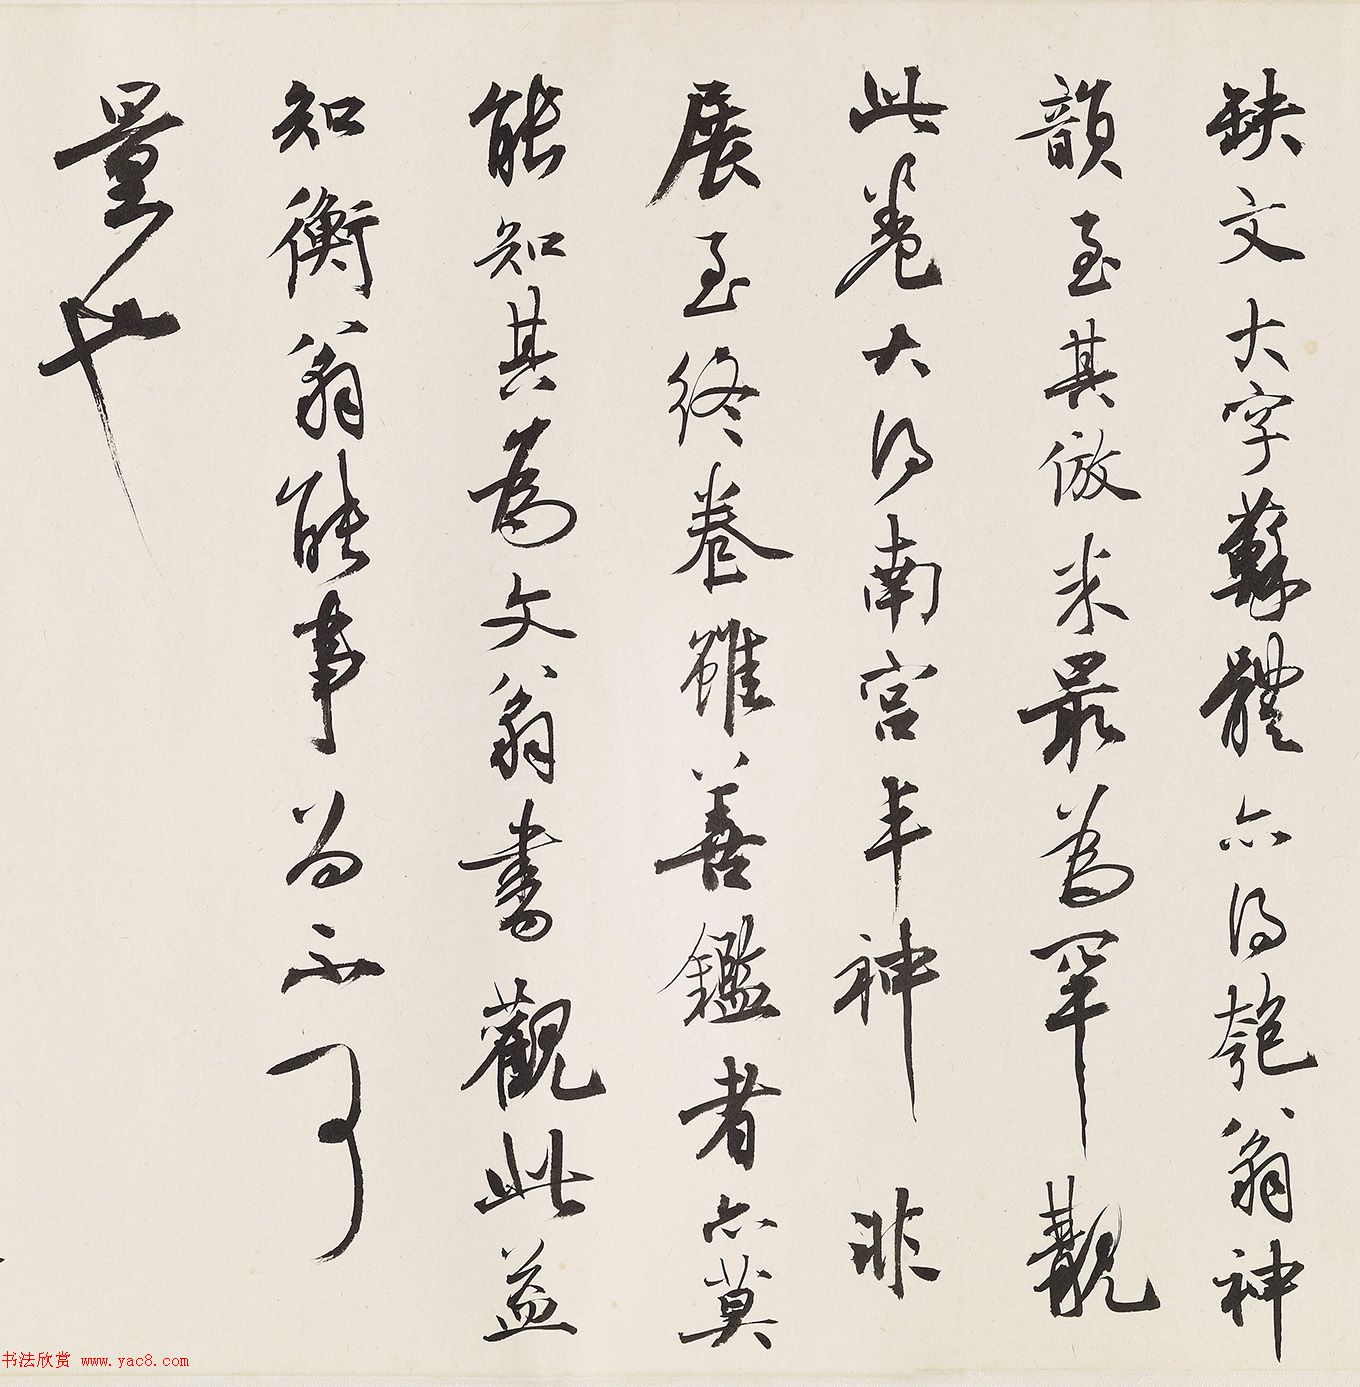 缺文大字蘇體亦得匏翁神
韻至其倣米最為罕觀
此卷大得南宮半神非
展至終卷雖善鑑者亦莫
能知其為文翁書觀此益
知衡翁能事為不可
量也
书法欣赏 www.yac8.com